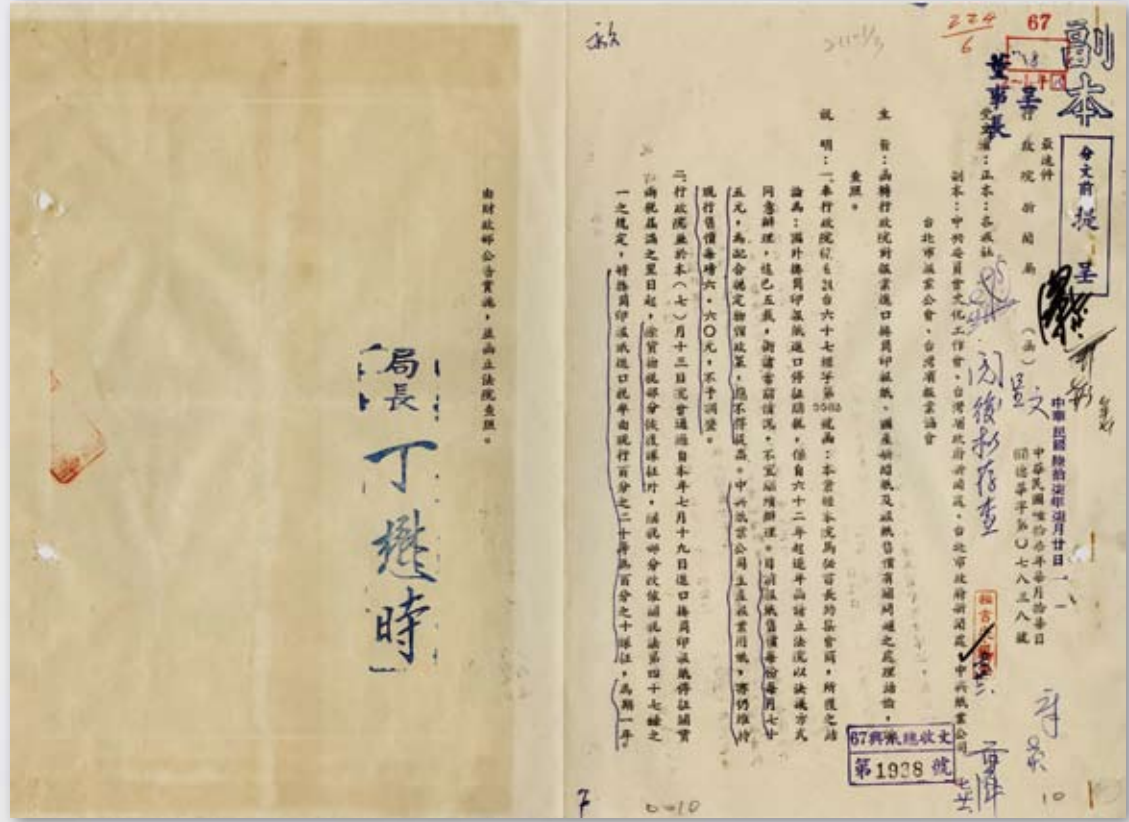 副本
分文前提呈
67
224/6
最速件
行政院新聞局（函）
中華民國陸拾柒年柒月廿日
中華民國陸拾柒年柒月拾柒日
德華字第〇七八三八號
呈
董事長
受文者：正本：各報社
副本：中央委員會文化工作會、台灣省政府新聞處、台北市政府新聞處、中央紙業公司
台北市報業公會、台灣省報業協會
閱後擬存查
主旨：函轉行政院對報業進口捲筒印報紙、國產新聞紙及報紙售價有關問題之處理結論，
查照。
說明：一、奉行政院台六十七經字第號函：本案經本院馬秘書長約集會商，所獲之結
論為：國外捲筒印報紙進口停征關稅，係自六十二年起逐年函請立法院以決議方式
同意辦理，迄已五載，衡諸當前情況，不宜繼續辦理。目前報紙售價每份每月七十
五元，為配合穩定物價政策，應不得提高。中興紙業公司生產報業用紙，亦仍維持
現行售價每磅六‧六〇元，不予調整。
二、行政院並於本（七）月十三日院會通過自本年七月十九日進口捲筒印報紙停征關貨
兩稅屆滿之翌日起，除貨物稅部分恢復課征外，關稅部分改依關稅法第四十七條之
一之規定，將捲筒印報紙進口稅率由現行百分之二十降為百分之十課征，為期一年
67興紙總收文
第1938號
0010
10
由財政部公告實施，並函立法院查照。
局長 丁懋時